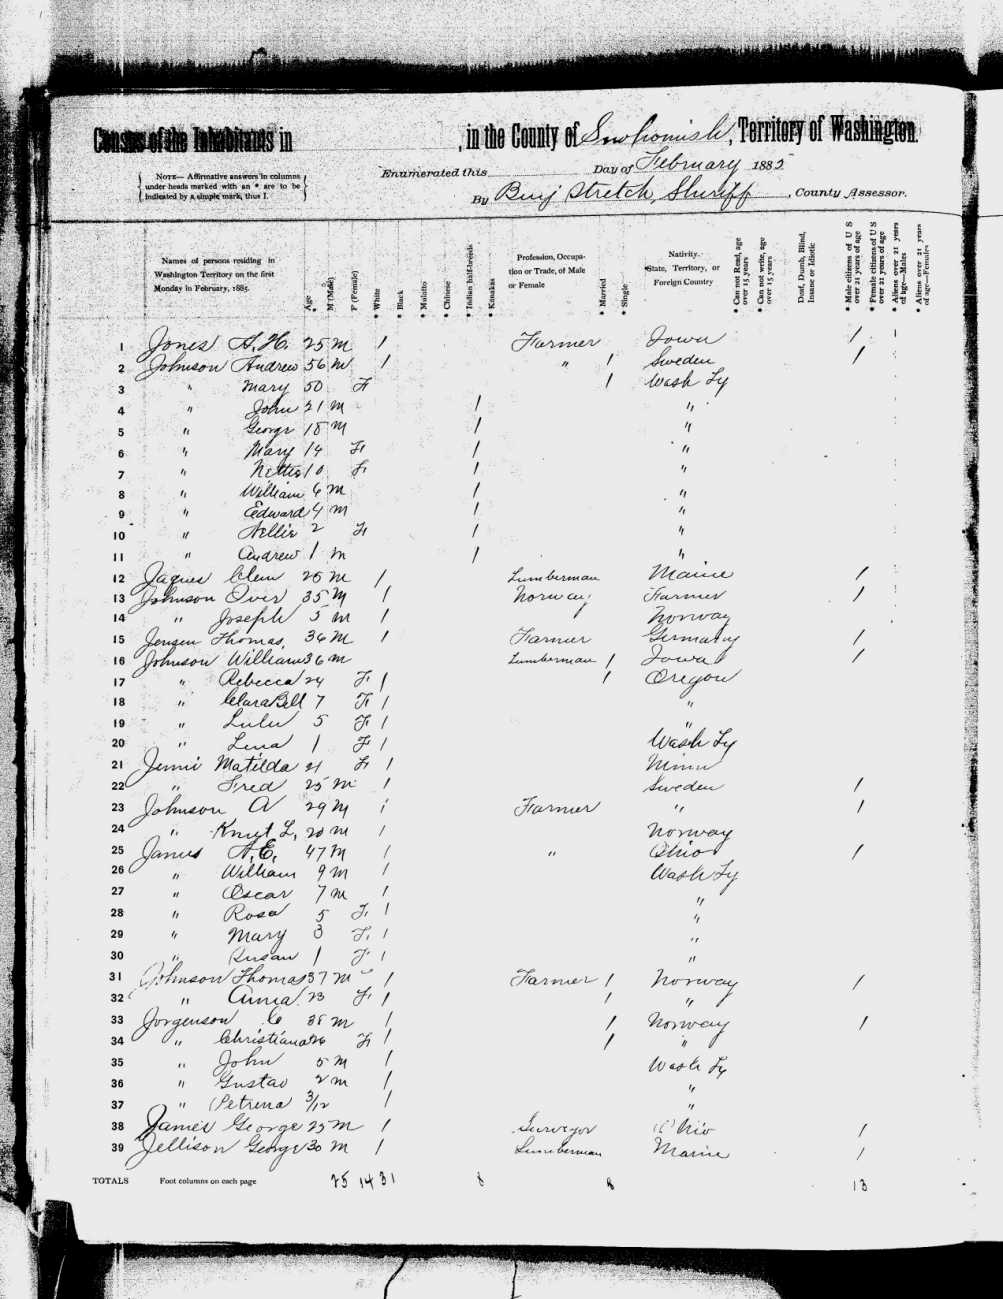 Census of the Inhabitants in , in the County of Snohomish, Territory of Washington.
NOTE— Affirmative answers in columns under heads marked with an * are to be indicated by a simple mark, thus I.
Enumerated this Day of February 1885
By Benj Stretch, Sheriff, County Assessor.
Names of persons residing in Washington Territory on the first Monday in February, 1885.
Age
M (Male)
F (Female)
* White
* Black
* Mulatto
* Chinese
* Indian half-breeds
* Kanakas
Profession, Occupation or Trade, of Male or Female
* Married
* Single
Nativity. State, Territory, or Foreign Country
* Can not Read, age over 15 years
* Can not write, age over 15 years
Deaf, Dumb, Blind, Insane or Idiotic
* Male citizens of U S over 21 years of age
* Female citizens of U S over 21 years of age
* Aliens over 21 years of age—Males
* Aliens over 21 years of age—Females
1 Jones A. H. 25 M / Farmer Iowa /
2 Johnson Andrew 56 M / " / Sweden /
3 " Mary 50 F / Wash Ty
4 " John 21 M / "
5 " George 18 M / "
6 " Mary 14 F / "
7 " Nettie 10 F / "
8 " William 6 M / "
9 " Edward 4 M / "
10 " Nellie 2 F / "
11 " Andrew 1 M / "
12 Jaques Clem 25 M / Lumberman Maine /
13 Johnson Over 35 M / Norway Farmer /
14 " Joseph 5 M / Norway
15 Jensen Thomas, 36 M / Farmer Germany /
16 Johnson William 36 M Lumberman / Iowa /
17 " Rebecca 24 F / / Oregon
18 " Clara Bell 7 F / "
19 " Lulu 5 F / "
20 " Lena 1 F / Wash Ty
21 Jennie Matilda 21 F / Minn
22 " Fred 25 M / Sweden /
23 Johnson A 29 M / Farmer " /
24 " Knut L, 20 M / Norway
25 James A. E. 47 M / " Ohio /
26 " William 9 M / Wash Ty
27 " Oscar 7 M / "
28 " Rosa 5 F / "
29 " Mary 3 F / "
30 " Susan 1 F / "
31 Johnson Thomas 37 M / Farmer / Norway /
32 " Anna 23 F / / "
33 Jorgenson C 38 M / / Norway /
34 " Christiana 26 F / / "
35 " John 5 M / Wash Ty
36 " Gustav 2 M / "
37 " Petrina 3/12 / "
38 James George 25 M / Surveyor Ohio /
39 Jellison George 30 M / Lumberman Maine /
TOTALS Foot columns on each page 25 14 31 8 8 13